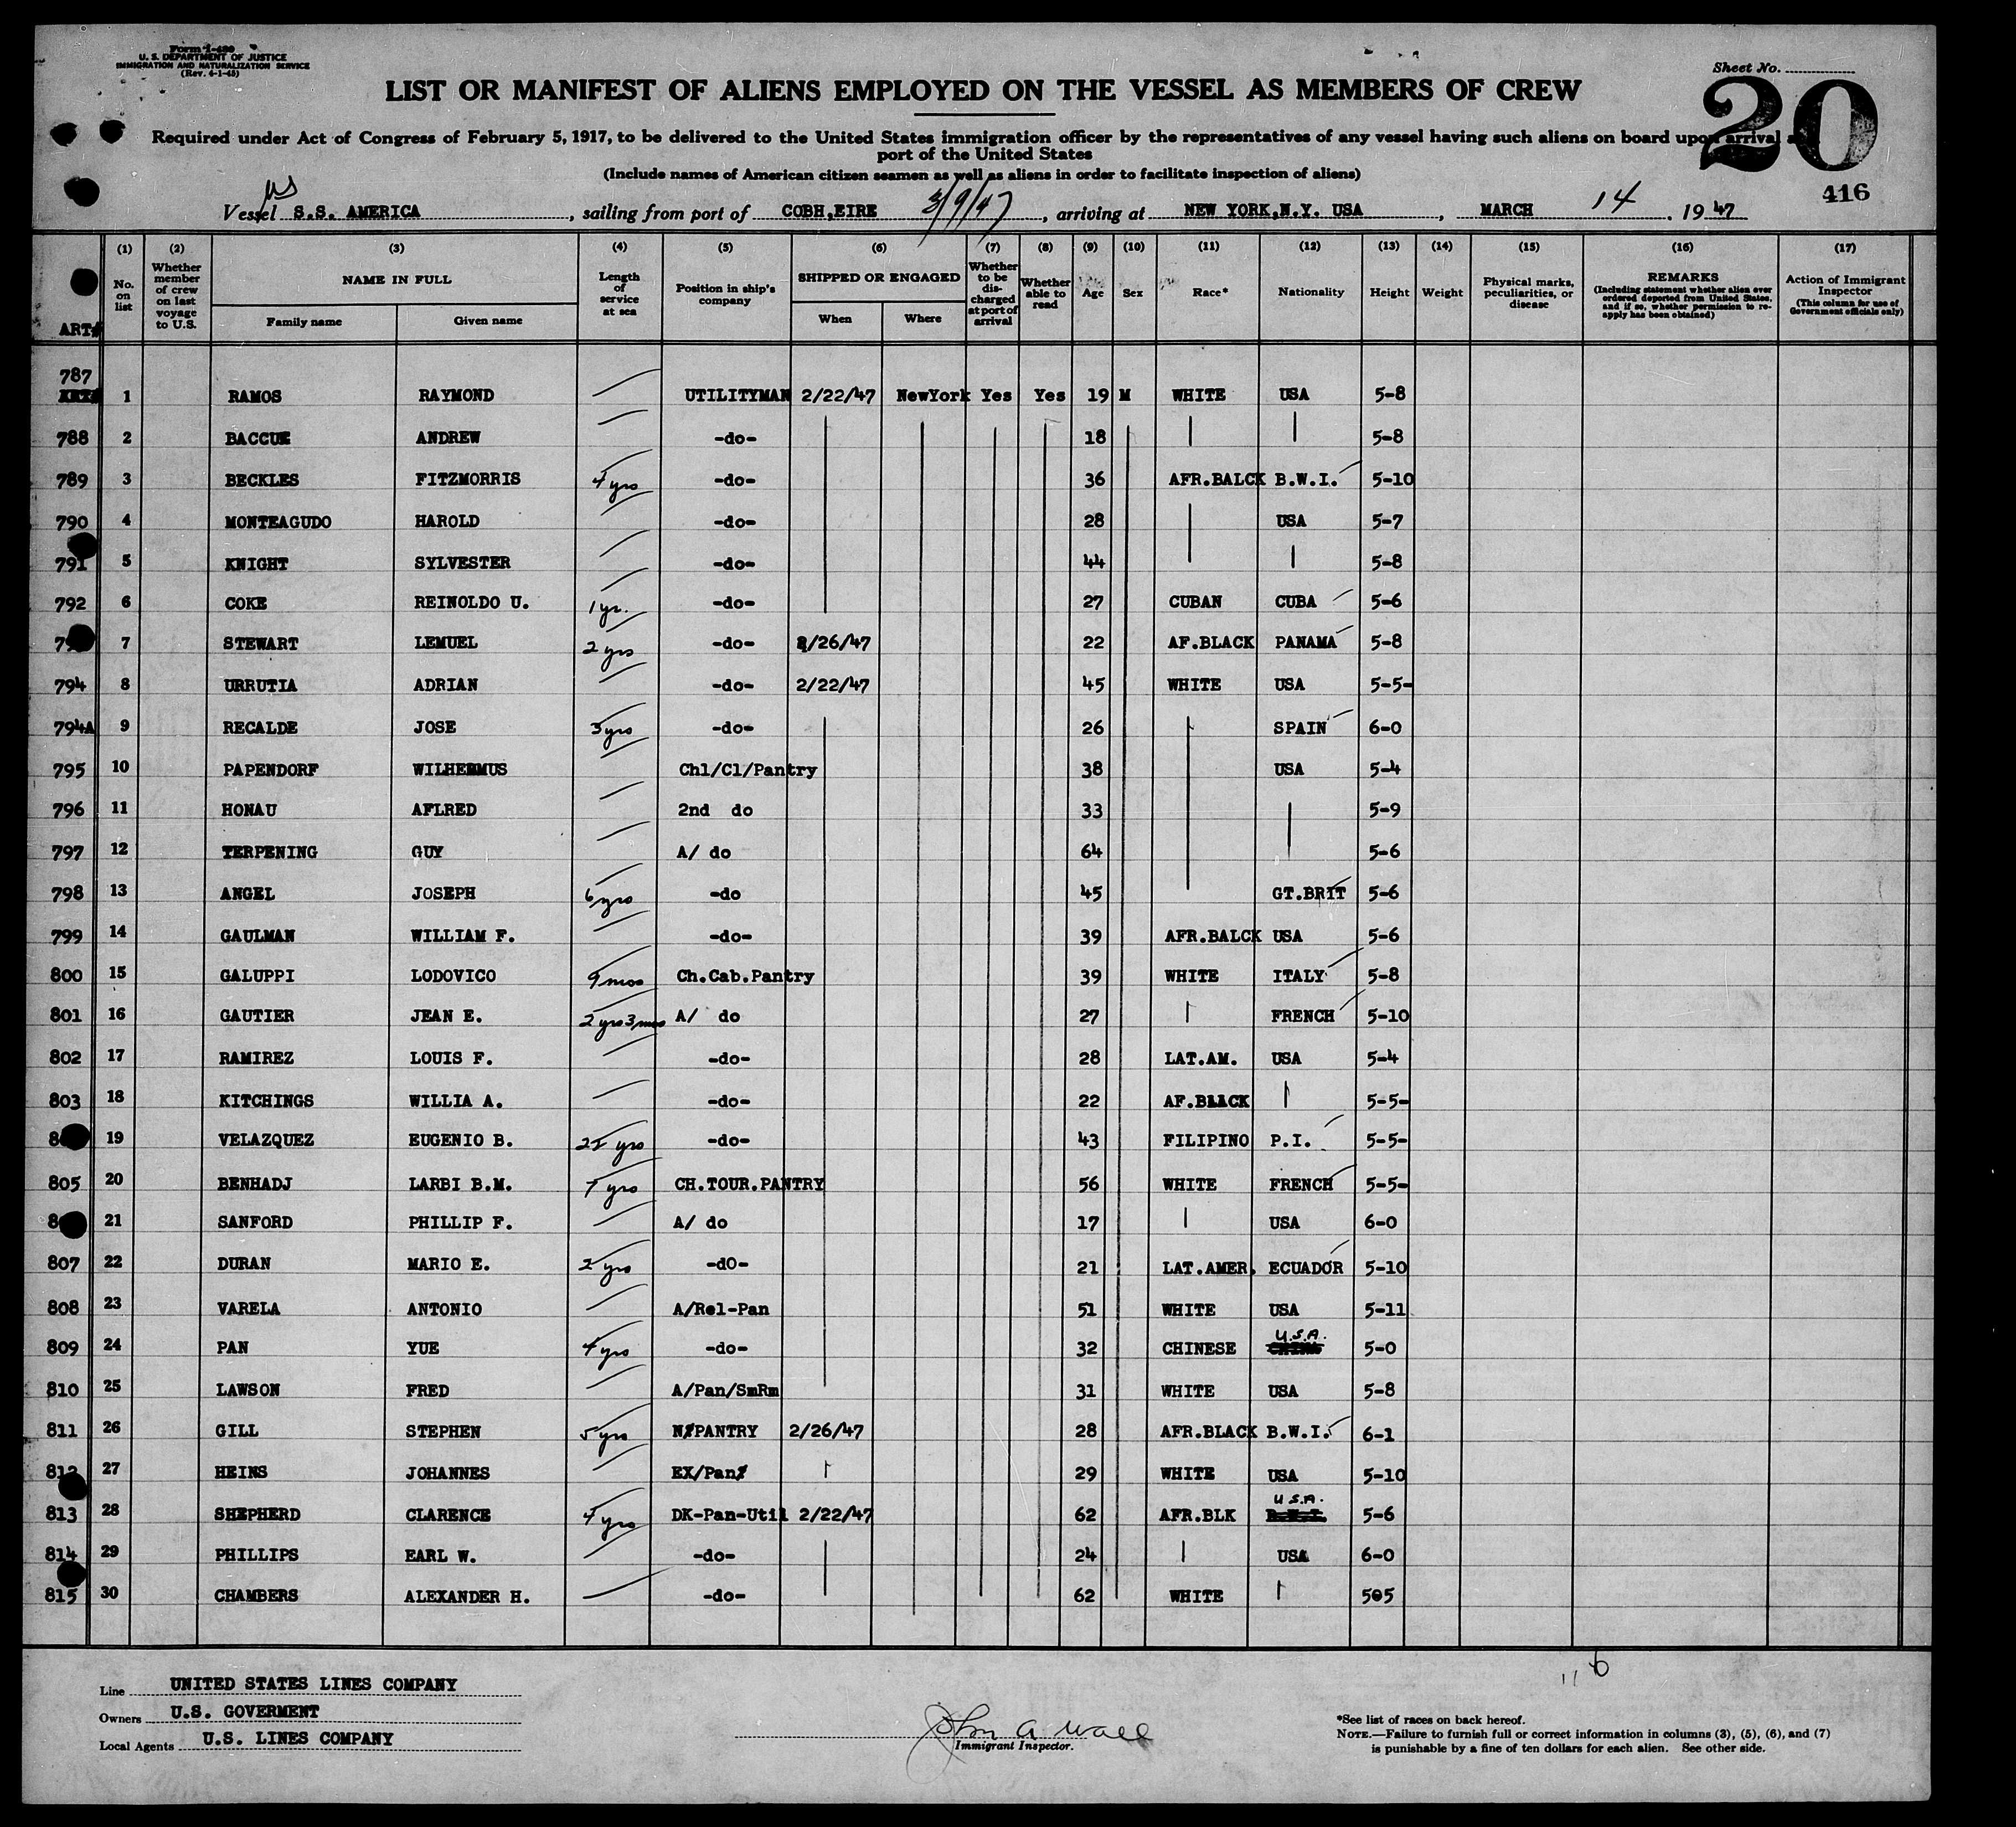 Form I-480
U. S. DEPARTMENT OF JUSTICE
IMMIGRATION AND NATURALIZATION SERVICE
(Rev. 4-1-45)
Sheet No.
20
416
LIST OR MANIFEST OF ALIENS EMPLOYED ON THE VESSEL AS MEMBERS OF CREW
Required under Act of Congress of February 5, 1917, to be delivered to the United States immigration officer by the representatives of any vessel having such aliens on board upon arrival a
port of the United States
(Include names of American citizen seamen as well as aliens in order to facilitate inspection of aliens)
US
Vessel S.S. AMERICA, sailing from port of COBH,EIRE 3/9/47, arriving at NEW YORK,N.Y. USA, MARCH 14, 1947
(1) (2) (3) (4) (5) (6) (7) (8) (9) (10) (11) (12) (13) (14) (15) (16) (17)
ART#
No. on list
Whether member of crew on last voyage to U.S.
NAME IN FULL
Family name Given name
Length of service at sea
Position in ship's company
SHIPPED OR ENGAGED
When Where
Whether to be discharged at port of arrival
Whether able to read
Age
Sex
Race*
Nationality
Height
Weight
Physical marks, peculiarities, or disease
REMARKS
(Including statement whether alien ever ordered deported from United States, and if so, whether permission to re-apply has been obtained)
Action of Immigrant Inspector
(This column for use of Government officials only)
787 1 RAMOS RAYMOND UTILITYMAN 2/22/47 NewYork Yes Yes 19 M WHITE USA 5-8
788 2 BACCUS ANDREW -do- 18 5-8
789 3 BECKLES FITZMORRIS 4 yrs -do- 36 AFR.BALCK B.W.I. 5-10
790 4 MONTEAGUDO HAROLD -do- 28 USA 5-7
791 5 KNIGHT SYLVESTER -do- 44 5-8
792 6 COKE REINOLDO U. 1 yr. -do- 27 CUBAN CUBA 5-6
7 STEWART LEMUEL 2 yrs -do- 2/26/47 22 AF.BLACK PANAMA 5-8
794 8 URRUTIA ADRIAN -do- 2/22/47 45 WHITE USA 5-5-
794A 9 RECALDE JOSE 3 yrs -do- 26 SPAIN 6-0
795 10 PAPENDORF WILHEMMUS Chl/Cl/Pantry 38 USA 5-4
796 11 HONAU AFLRED 2nd do 33 5-9
797 12 TERPENING GUY A/ do 64 5-6
798 13 ANGEL JOSEPH 6 yrs -do 45 GT.BRIT 5-6
799 14 GAULMAN WILLIAM F. -do- 39 AFR.BALCK USA 5-6
800 15 GALUPPI LODOVICO 9 mos Ch.Cab.Pantry 39 WHITE ITALY 5-8
801 16 GAUTIER JEAN E. 2 yrs 3 mos A/ do 27 FRENCH 5-10
802 17 RAMIREZ LOUIS F. -do- 28 LAT.AM. USA 5-4
803 18 KITCHINGS WILLIA A. -do- 22 AF.BLACK 5-5-
19 VELAZQUEZ EUGENIO B. 25 yrs -do- 43 FILIPINO P.I. 5-5-
805 20 BENHADJ LARBI B.M. 7 yrs CH.TOUR.PANTRY 56 WHITE FRENCH 5-5-
21 SANFORD PHILLIP F. A/ do 17 USA 6-0
807 22 DURAN MARIO E. 2 yrs -dO- 21 LAT.AMER. ECUADOR 5-10
808 23 VARELA ANTONIO A/Rel-Pan 51 WHITE USA 5-11
809 24 PAN YUE 4 yrs -do- 32 CHINESE U.S.A. 5-0
810 25 LAWSON FRED A/Pan/SmRm 31 WHITE USA 5-8
811 26 GILL STEPHEN 5 yrs N/PANTRY 2/26/47 28 AFR.BLACK B.W.I. 6-1
812 27 HEINS JOHANNES EX/Pan 29 WHITE USA 5-10
813 28 SHEPHERD CLARENCE 4 yrs DK-Pan-Util 2/22/47 62 AFR.BLK U.S.A. 5-6
814 29 PHILLIPS EARL W. -do- 24 USA 6-0
815 30 CHAMBERS ALEXANDER H. -do- 62 WHITE 505
Line UNITED STATES LINES COMPANY
Owners U.S. GOVERMENT
Local Agents U.S. LINES COMPANY
John A Wall
Immigrant Inspector.
*See list of races on back hereof.
NOTE.—Failure to furnish full or correct information in columns (3), (5), (6), and (7)
is punishable by a fine of ten dollars for each alien. See other side.